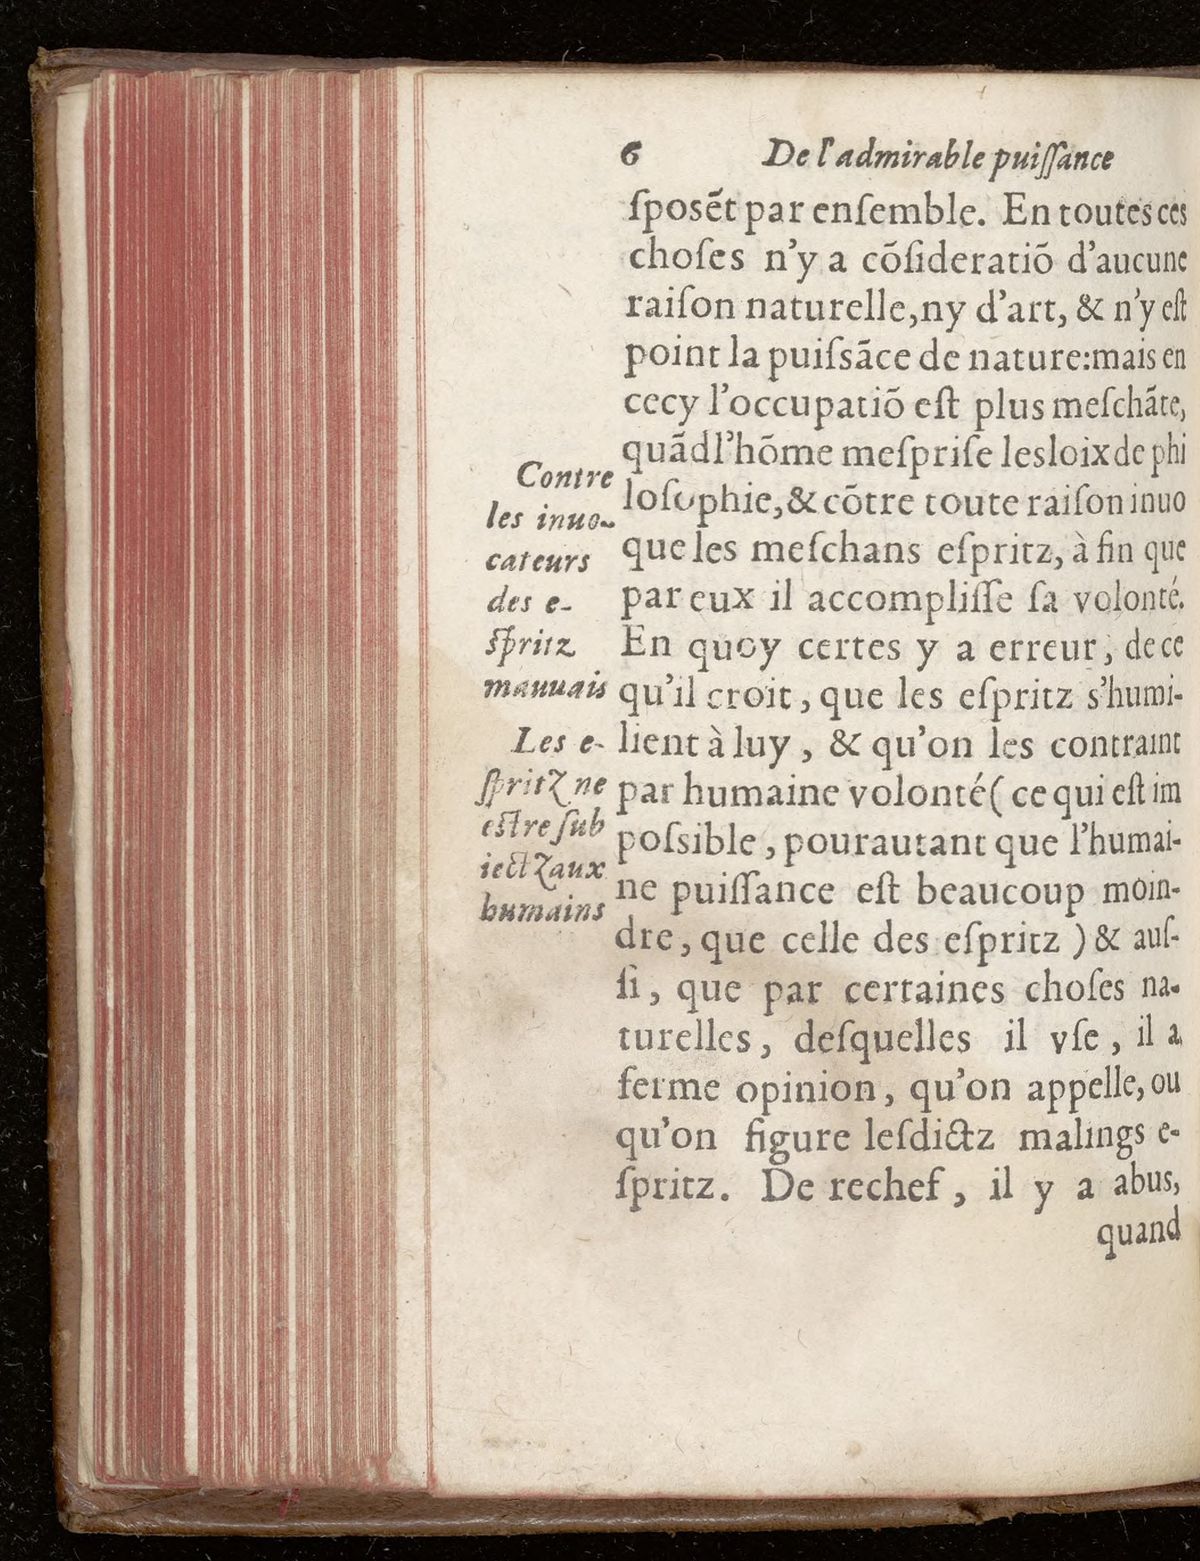 6 De l'admirable puiſſance
ſposẽt par enſemble. En toutes ces
choſes n'y a cõſideratiõ d'aucune
raiſon naturelle,ny d'art, & n'y eſt
point la puiſsãce de nature:mais en
cecy l'occupatiõ eſt plus meſchãte,
quãd l'hõme meſpriſe les loix de phi
loſophie,& cõtre toute raiſon inuo
que les meſchans eſpritz, à fin que
par eux il accompliſſe ſa volonté.
En quoy certes y a erreur, de ce
qu'il croit, que les eſpritz s'humi-
lient à luy, & qu'on les contraint
par humaine volonté( ce qui eſt im
poſsible, pourautant que l'humai-
ne puiſſance eſt beaucoup moin-
dre, que celle des eſpritz ) & auſ-
ſi, que par certaines choſes na-
turelles, deſquelles il vſe, il a
ferme opinion, qu'on appelle, ou
qu'on figure leſdictz malings e-
ſpritz. De rechef, il y a abus,
quand
Contre
les inuo-
cateurs
des e-
ſpritz
mauuais
Les e-
ſpritz ne
eſtre ſub
iectz aux
humains